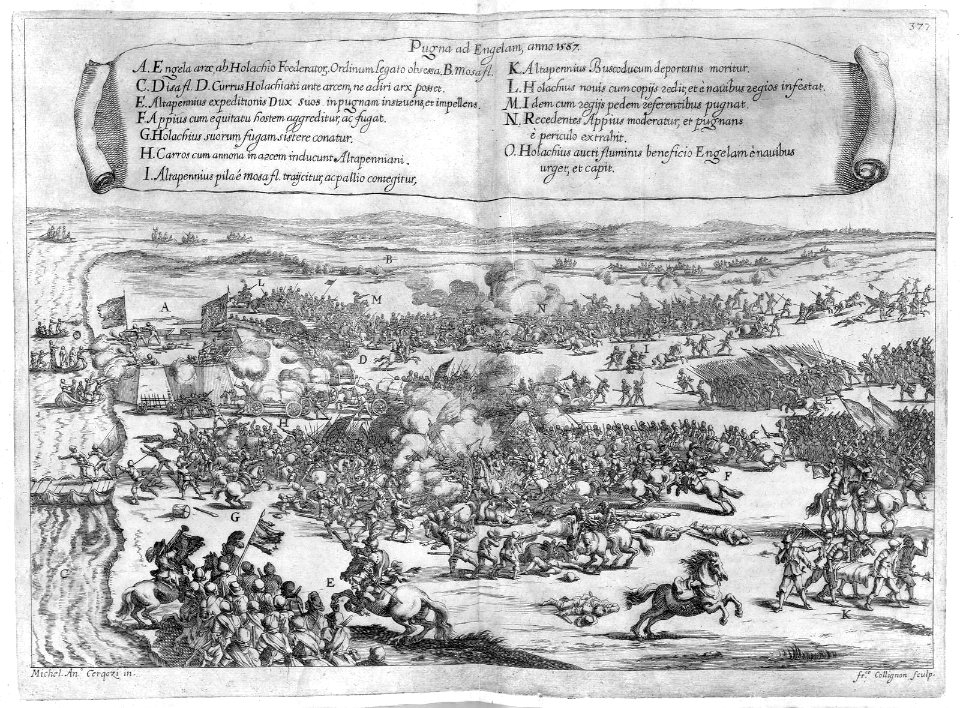 377
Pugna ad Engelam, anno 1587.
A. Engela arx ab Holachio Foederator. Ordinum Legato obsessa. B. Mosa fl.
C. Disa fl. D. Currus Holachiani ante arcem, ne adiri arx posset.
E. Altapennius expeditionis Dux suos in pugnam instruens, et impellens.
F. Appius cum equitatu hostem aggreditur, ac fugat.
G. Holachius suorum fugam sistere conatur.
H. Carros cum annona in arcem inducunt Altapenniani.
I. Altapennius pila è mosa fl. traijcitur, ac pallio contegitur.
K. Altapennius Buscoducum deportatus moritur.
L. Holachus nouis cum copijs redit, et è nauibus regios infestat.
M. Idem cum regijs pedem referentibus pugnat.
N. Recedentes Appius moderatur, et pugnans
è periculo extrahit.
O. Holachius aucti fluminis beneficio Engelam è nauibus
urget, et capit.
B
L
M
A
N
D
I
H
F
G
E
C
K
Michel. An. Cerqozi in.
fr. Collignon sculp.